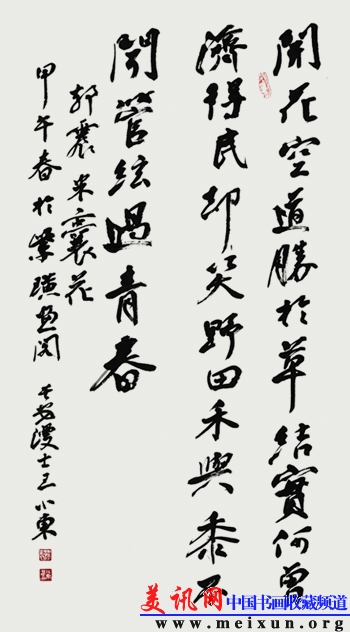 開花空道勝於草結實何曾
濟得民却笑野田禾與黍不
聞管絃過青春
郭震米囊花
甲午春於 閣 漫士王小東
美讯网 中国书画收藏频道
www.meixun.org